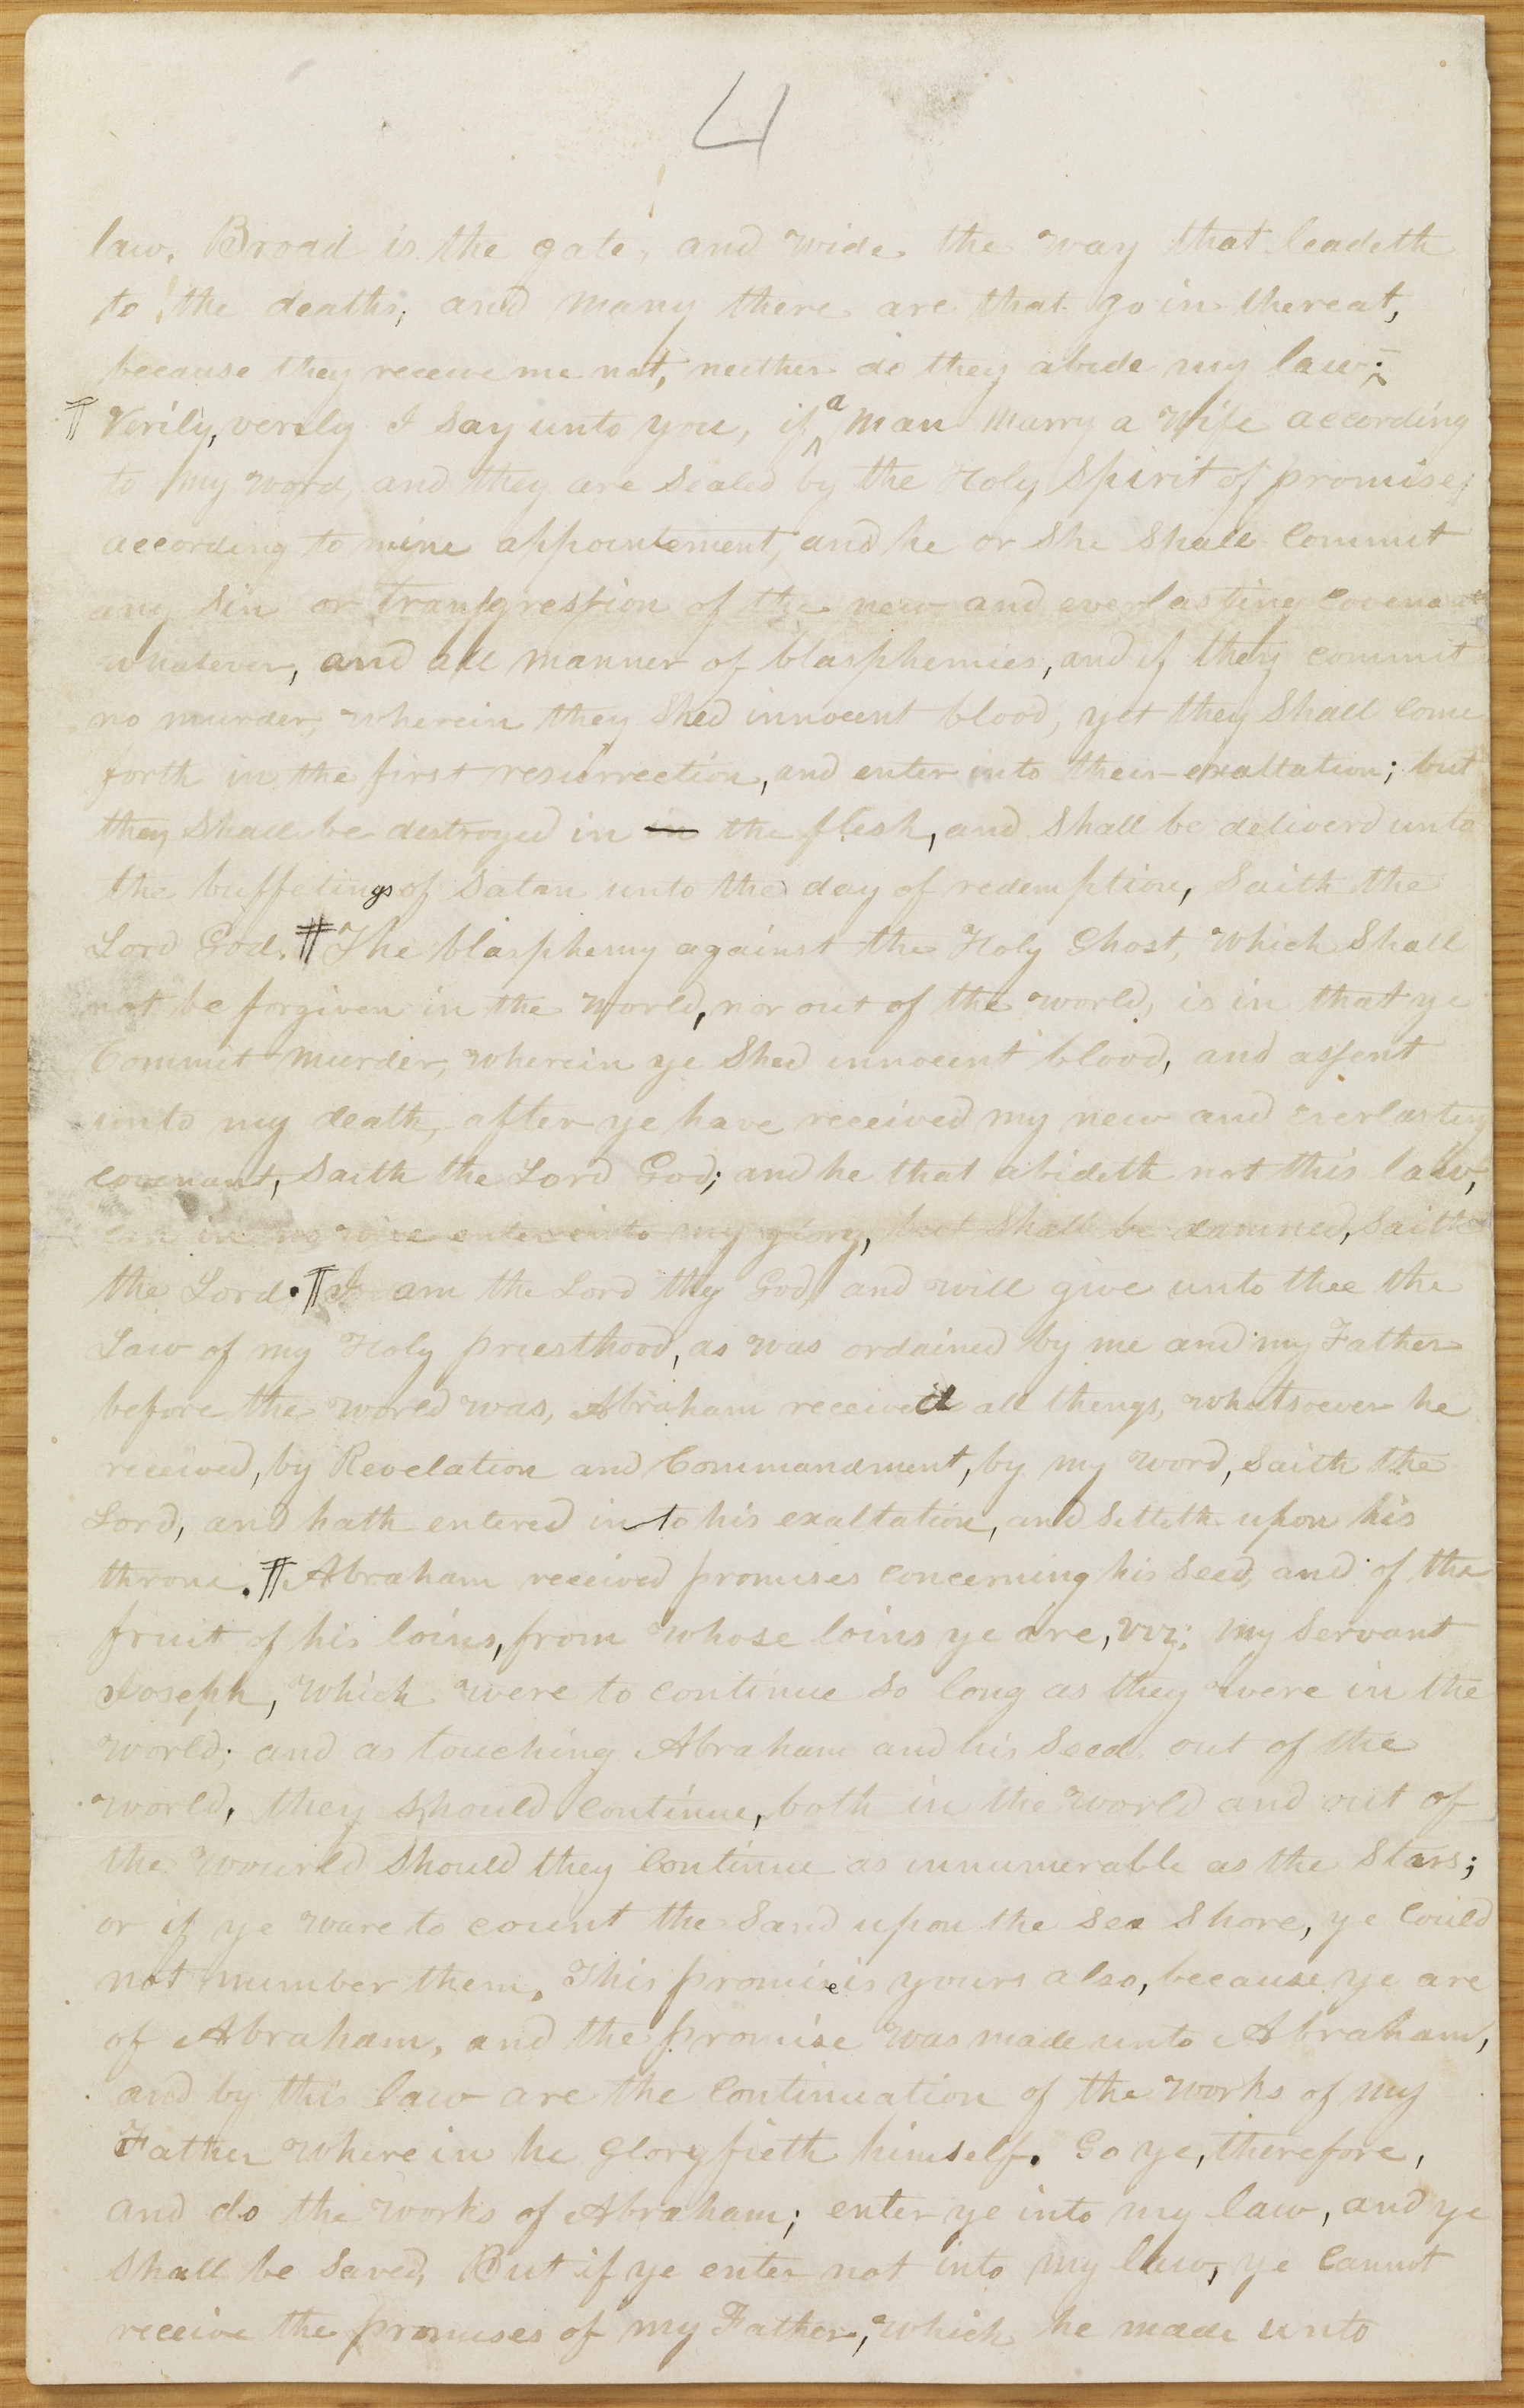 4
law. Broad is the gate, and wide the way that leadeth
to the deaths, and many there are that go in thereat,
because they receive me not, neither do they abide my law.
¶ Verily, verily I Say unto you, if a man marry a wife according
to my word, and they are Sealed by the Holy Spirit of promise,
according to mine appointement, and he or She Shall Commit
any Sin or transgression of the new and everlasting Covenant
whatever, and all manner of blasphemies, and if they commit
no murder, wherein they Shed innocent blood, yet they Shall Come
forth in the first resurrection, and enter into their exaltation; but
they Shall be destroyed in in the flesh, and Shall be deliverd unto
the buffetings of Satan unto the day of redemption, Saith the
Lord God. ¶ The blasphemy against the Holy Ghost, which Shall
not be forgiven in the world, nor out of the world, is in that ye
Commit murder, wherein ye Shed innocent blood, and assent
unto my death, after ye have received my new and everlasting
covenant, Saith the Lord God; and he that abideth not this law,
can in no wise enter into my glory, but Shall be damned, Saith
the Lord. ¶ I am the Lord thy God, and will give unto thee the
Law of my Holy priesthood, as was ordained by me and my Father
before the world was, Abraham received all things, whatsoever he
received, by Revelation and Commandment, by my word, Saith the
Lord, and hath entered into his exaltation, and Sitteth upon his
throne. ¶ Abraham received promises concerning his Seed, and of the
fruit of his loins, from whose loins ye are, viz; my Servant
Joseph, which were to continue So long as they were in the
world; and as touching Abraham and his Seed out of the
world, they Should continue, both in the world and out of
the wourld Should they Continue as innumerable as the Stars;
or if ye ware to count the Sand upon the Sea Shore, ye Could
not number them. This promise is yours also, because ye are
of Abraham, and the promise was made unto Abraham,
and by this law are the Continuation of the works of my
Father where in he gloryfieth himself. Go ye, therefore,
and do the works of Abraham; enter ye into my law, and ye
Shall be Saved, But if ye enter not into my law, ye Cannot
receive the promises of my Father, which he made unto